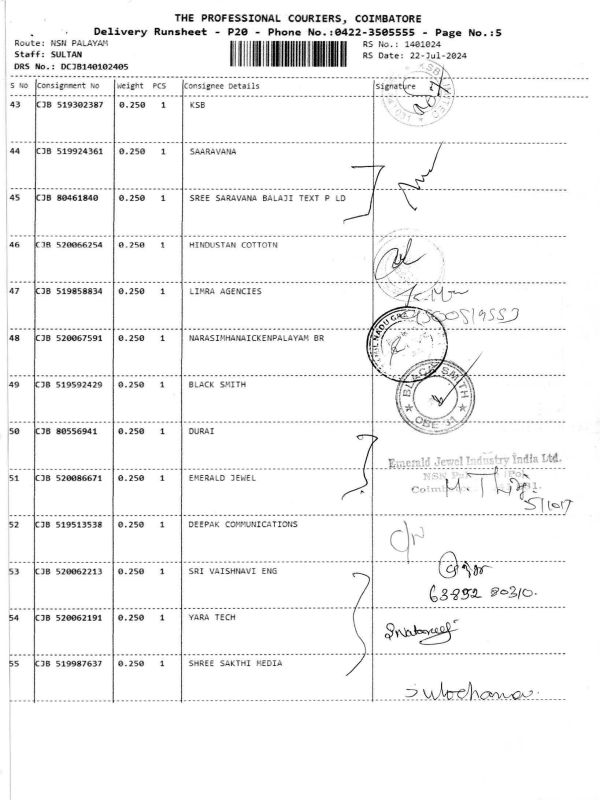 THE PROFESSIONAL COURIERS, COIMBATORE
Delivery Runsheet - P20 - Phone No.:0422-3505555 - Page No.:5
Route: NSN PALAYAM RS No.: 1401024
Staff: SULTAN RS Date: 22-Jul-2024
DRS No.: DCJB140102405
S No Consignment No Weight PCS Consignee Details Signature
43 CJB 519302387 0.250 1 KSB
44 CJB 519924361 0.250 1 SAARAVANA
45 CJB 80461840 0.250 1 SREE SARAVANA BALAJI TEXT P LD
46 CJB 520066254 0.250 1 HINDUSTAN COTTOTN
47 CJB 519858834 0.250 1 LIMRA AGENCIES
48 CJB 520067591 0.250 1 NARASIMHANAICKENPALAYAM BR
49 CJB 519592429 0.250 1 BLACK SMITH
BLACK SMITH
50 CJB 80556941 0.250 1 DURAI
Emerald Jewel Industry India Ltd.
51 CJB 520086671 0.250 1 EMERALD JEWEL
51017
52 CJB 519513538 0.250 1 DEEPAK COMMUNICATIONS
53 CJB 520062213 0.250 1 SRI VAISHNAVI ENG
63892 80310.
54 CJB 520062191 0.250 1 YARA TECH
55 CJB 519987637 0.250 1 SHREE SAKTHI MEDIA
Sulochana